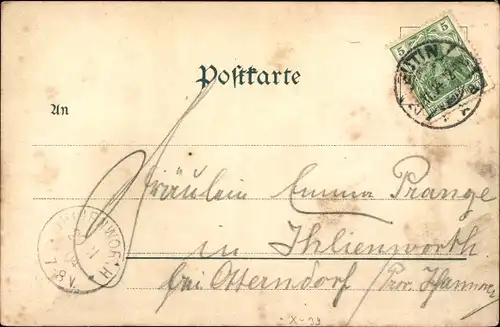 5 5
EUTIN
Postkarte
An
Fräulein Emma Prange
in Ihlienworth
bei Otterndorf / Prov. Hannover
IHLIENWORTH
X-39